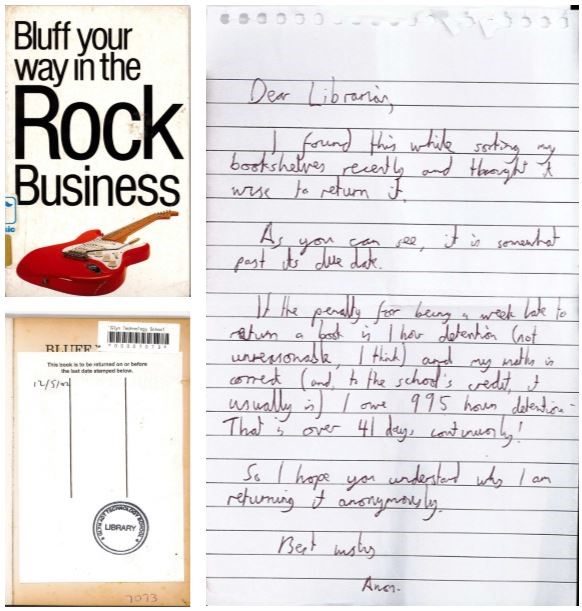 Bluff your
way in the
Rock
Business
sic
Glyn Technology School
BLUFF
This book is to be returned on or before
the last date stamped below.
12/5/02
LIBRARY
7073
Dear Librarian,
I found this while sorting my
bookshelves recently and thought it
wise to return it.
As you can see, it is somewhat
past its due date.
If the penalty for being a week late to
return a book is 1 hour detention (not
unreasonable, I think) and my maths is
correct (and, to the school's credit, it
usually is) I owe 995 hours detention -
That is over 41 days, continuously!
So I hope you understand why I am
returning it anonymously.
Best wishes
Anon.